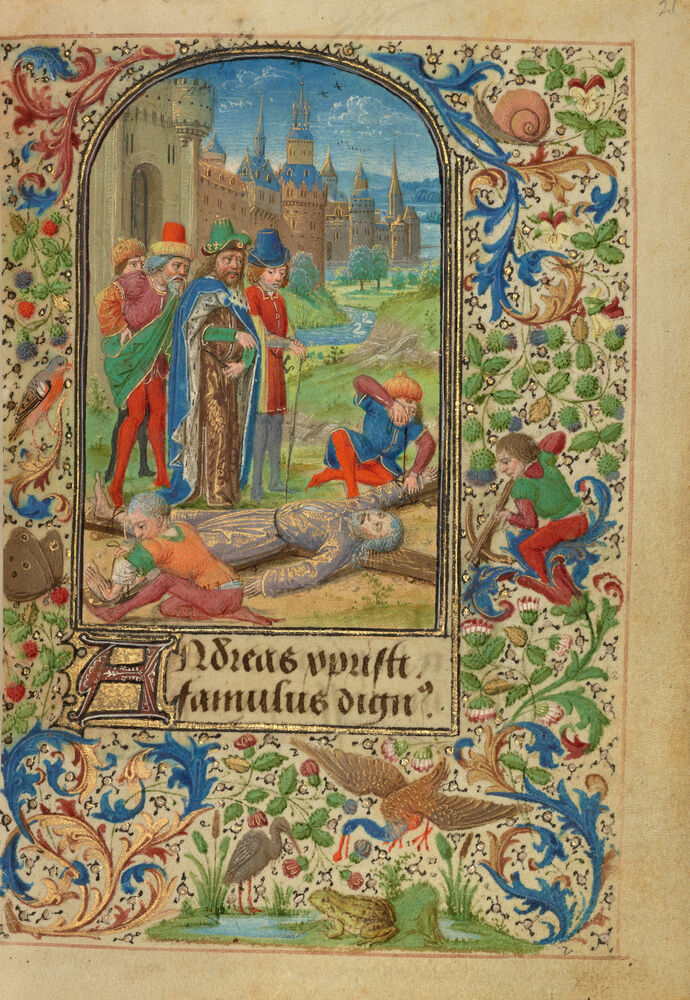 Andreas xpristi
famulus dign⁹